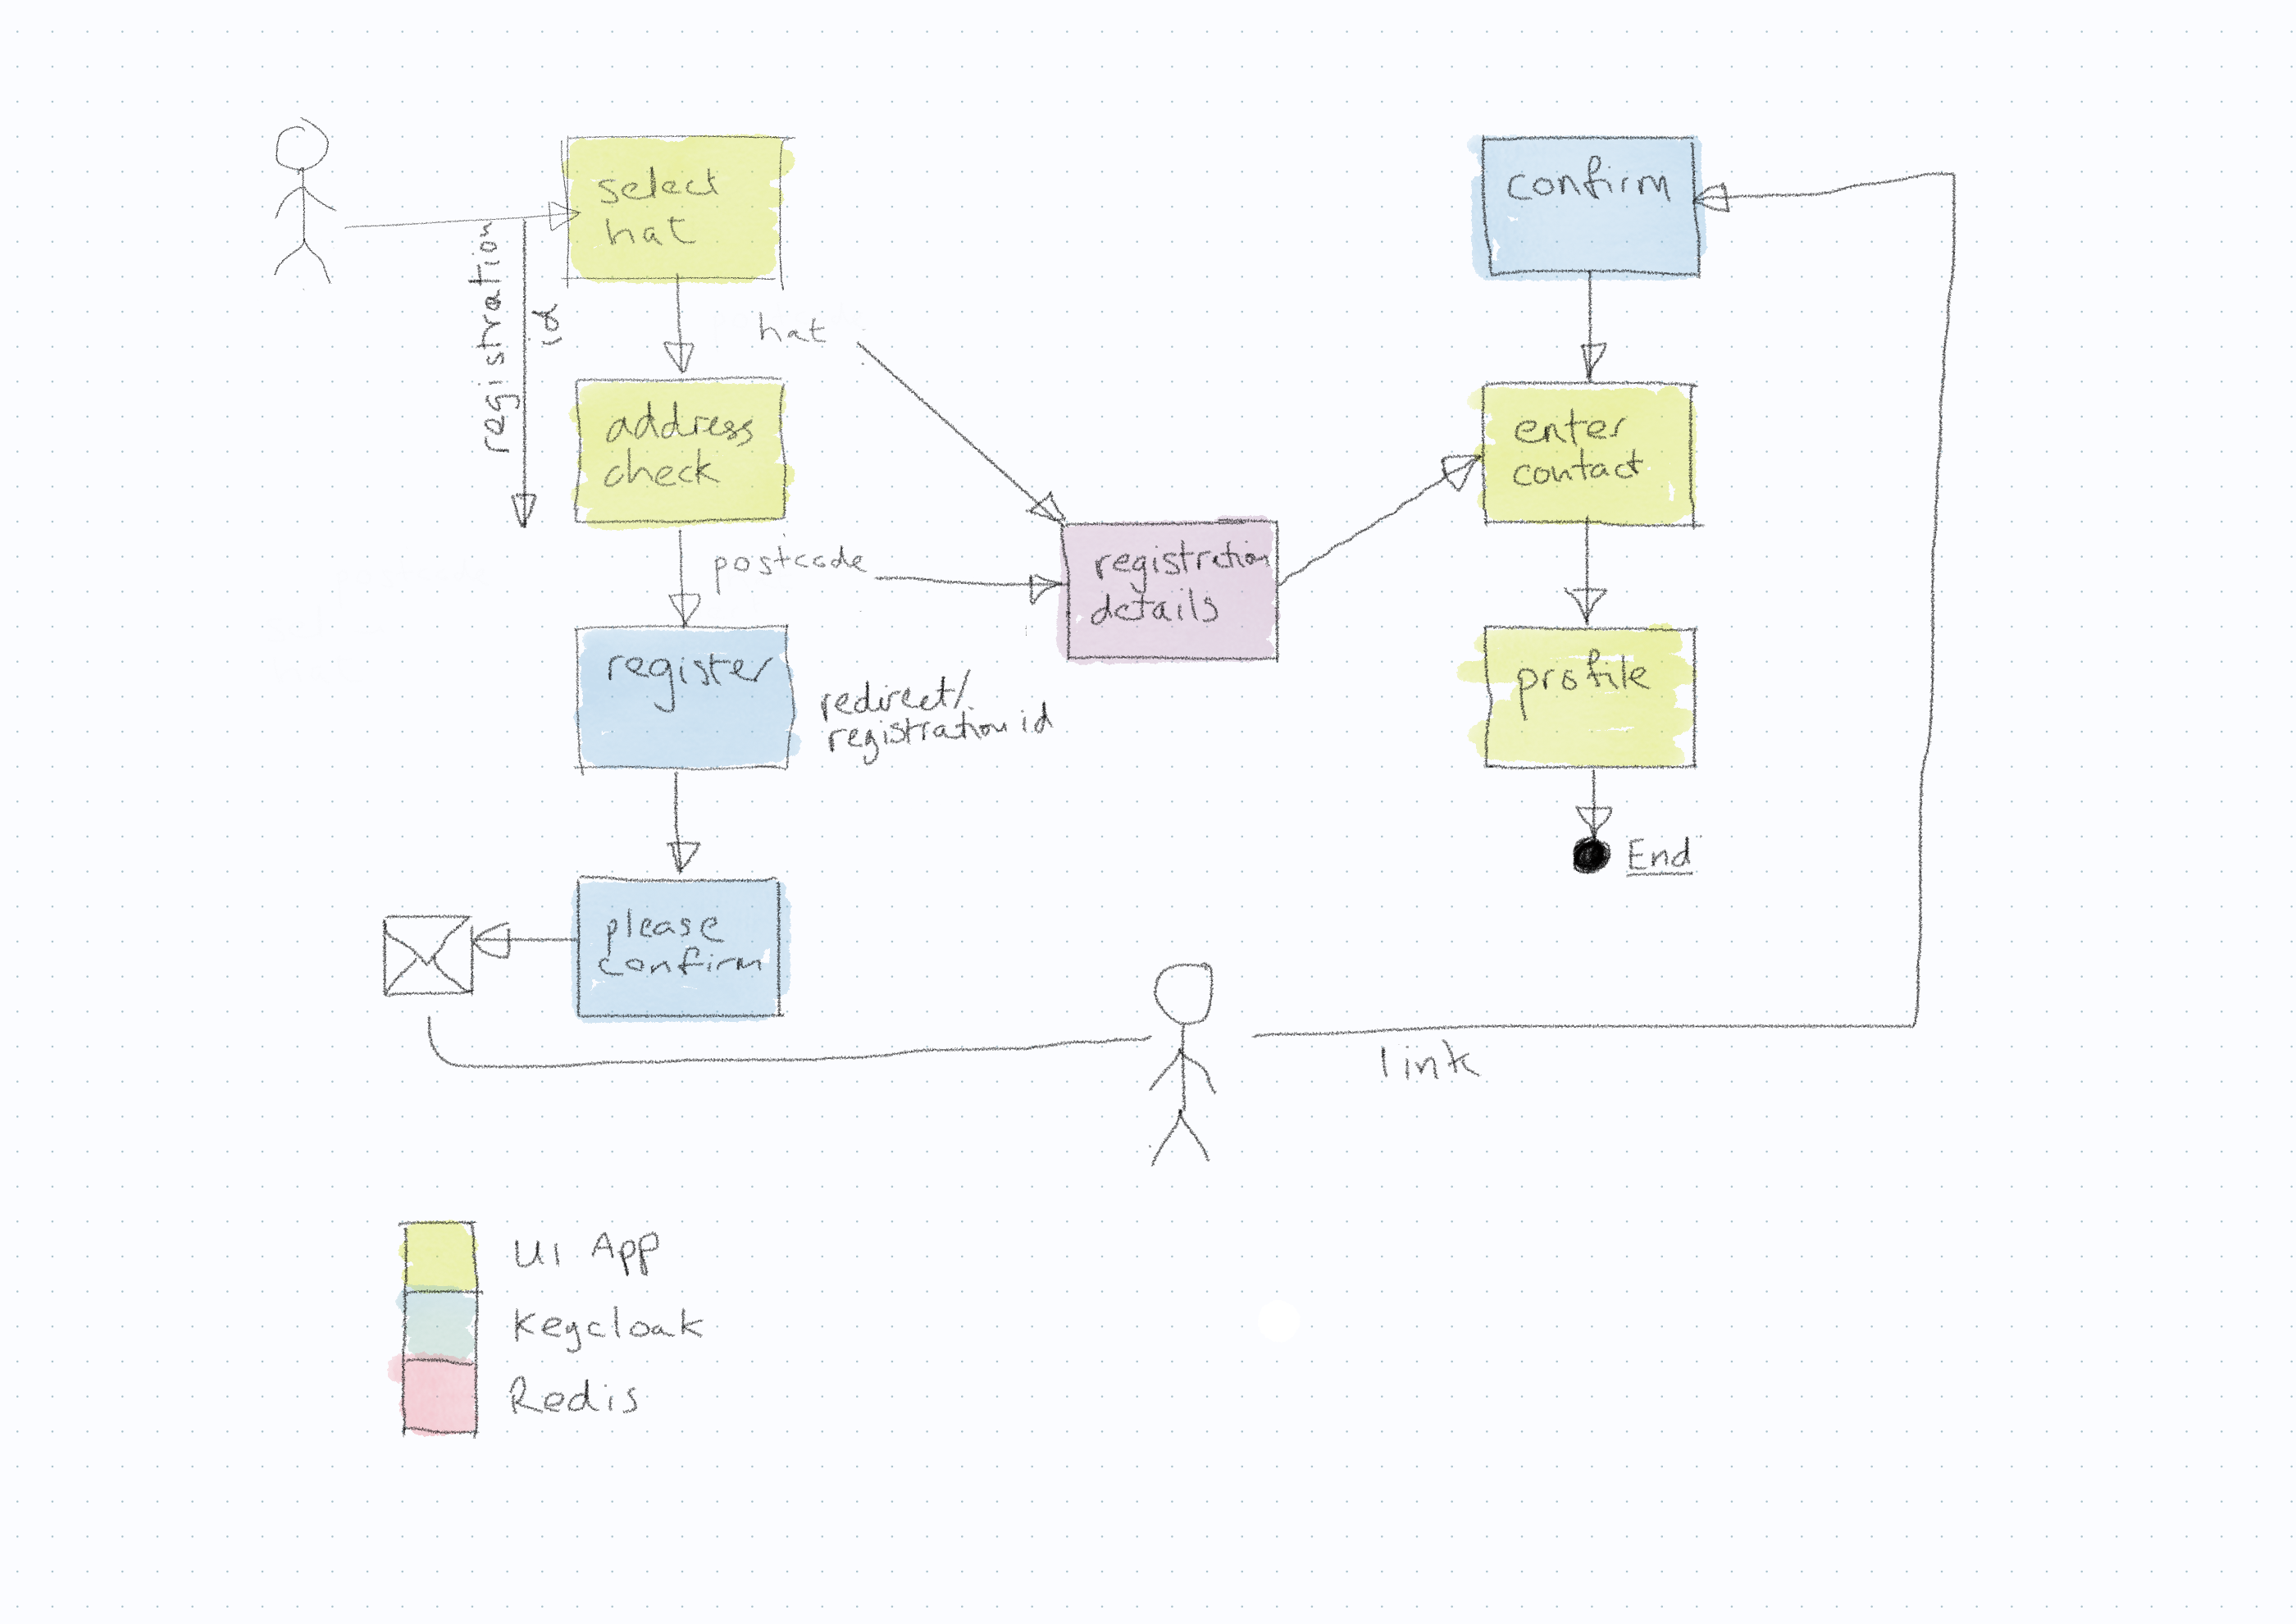 select
hat
registration
id
hat
address
check
postcode
registration
details
register
redirect/
registration id
please
confirm
link
confirm
enter
contact
profile
End
UI App
Keycloak
Redis